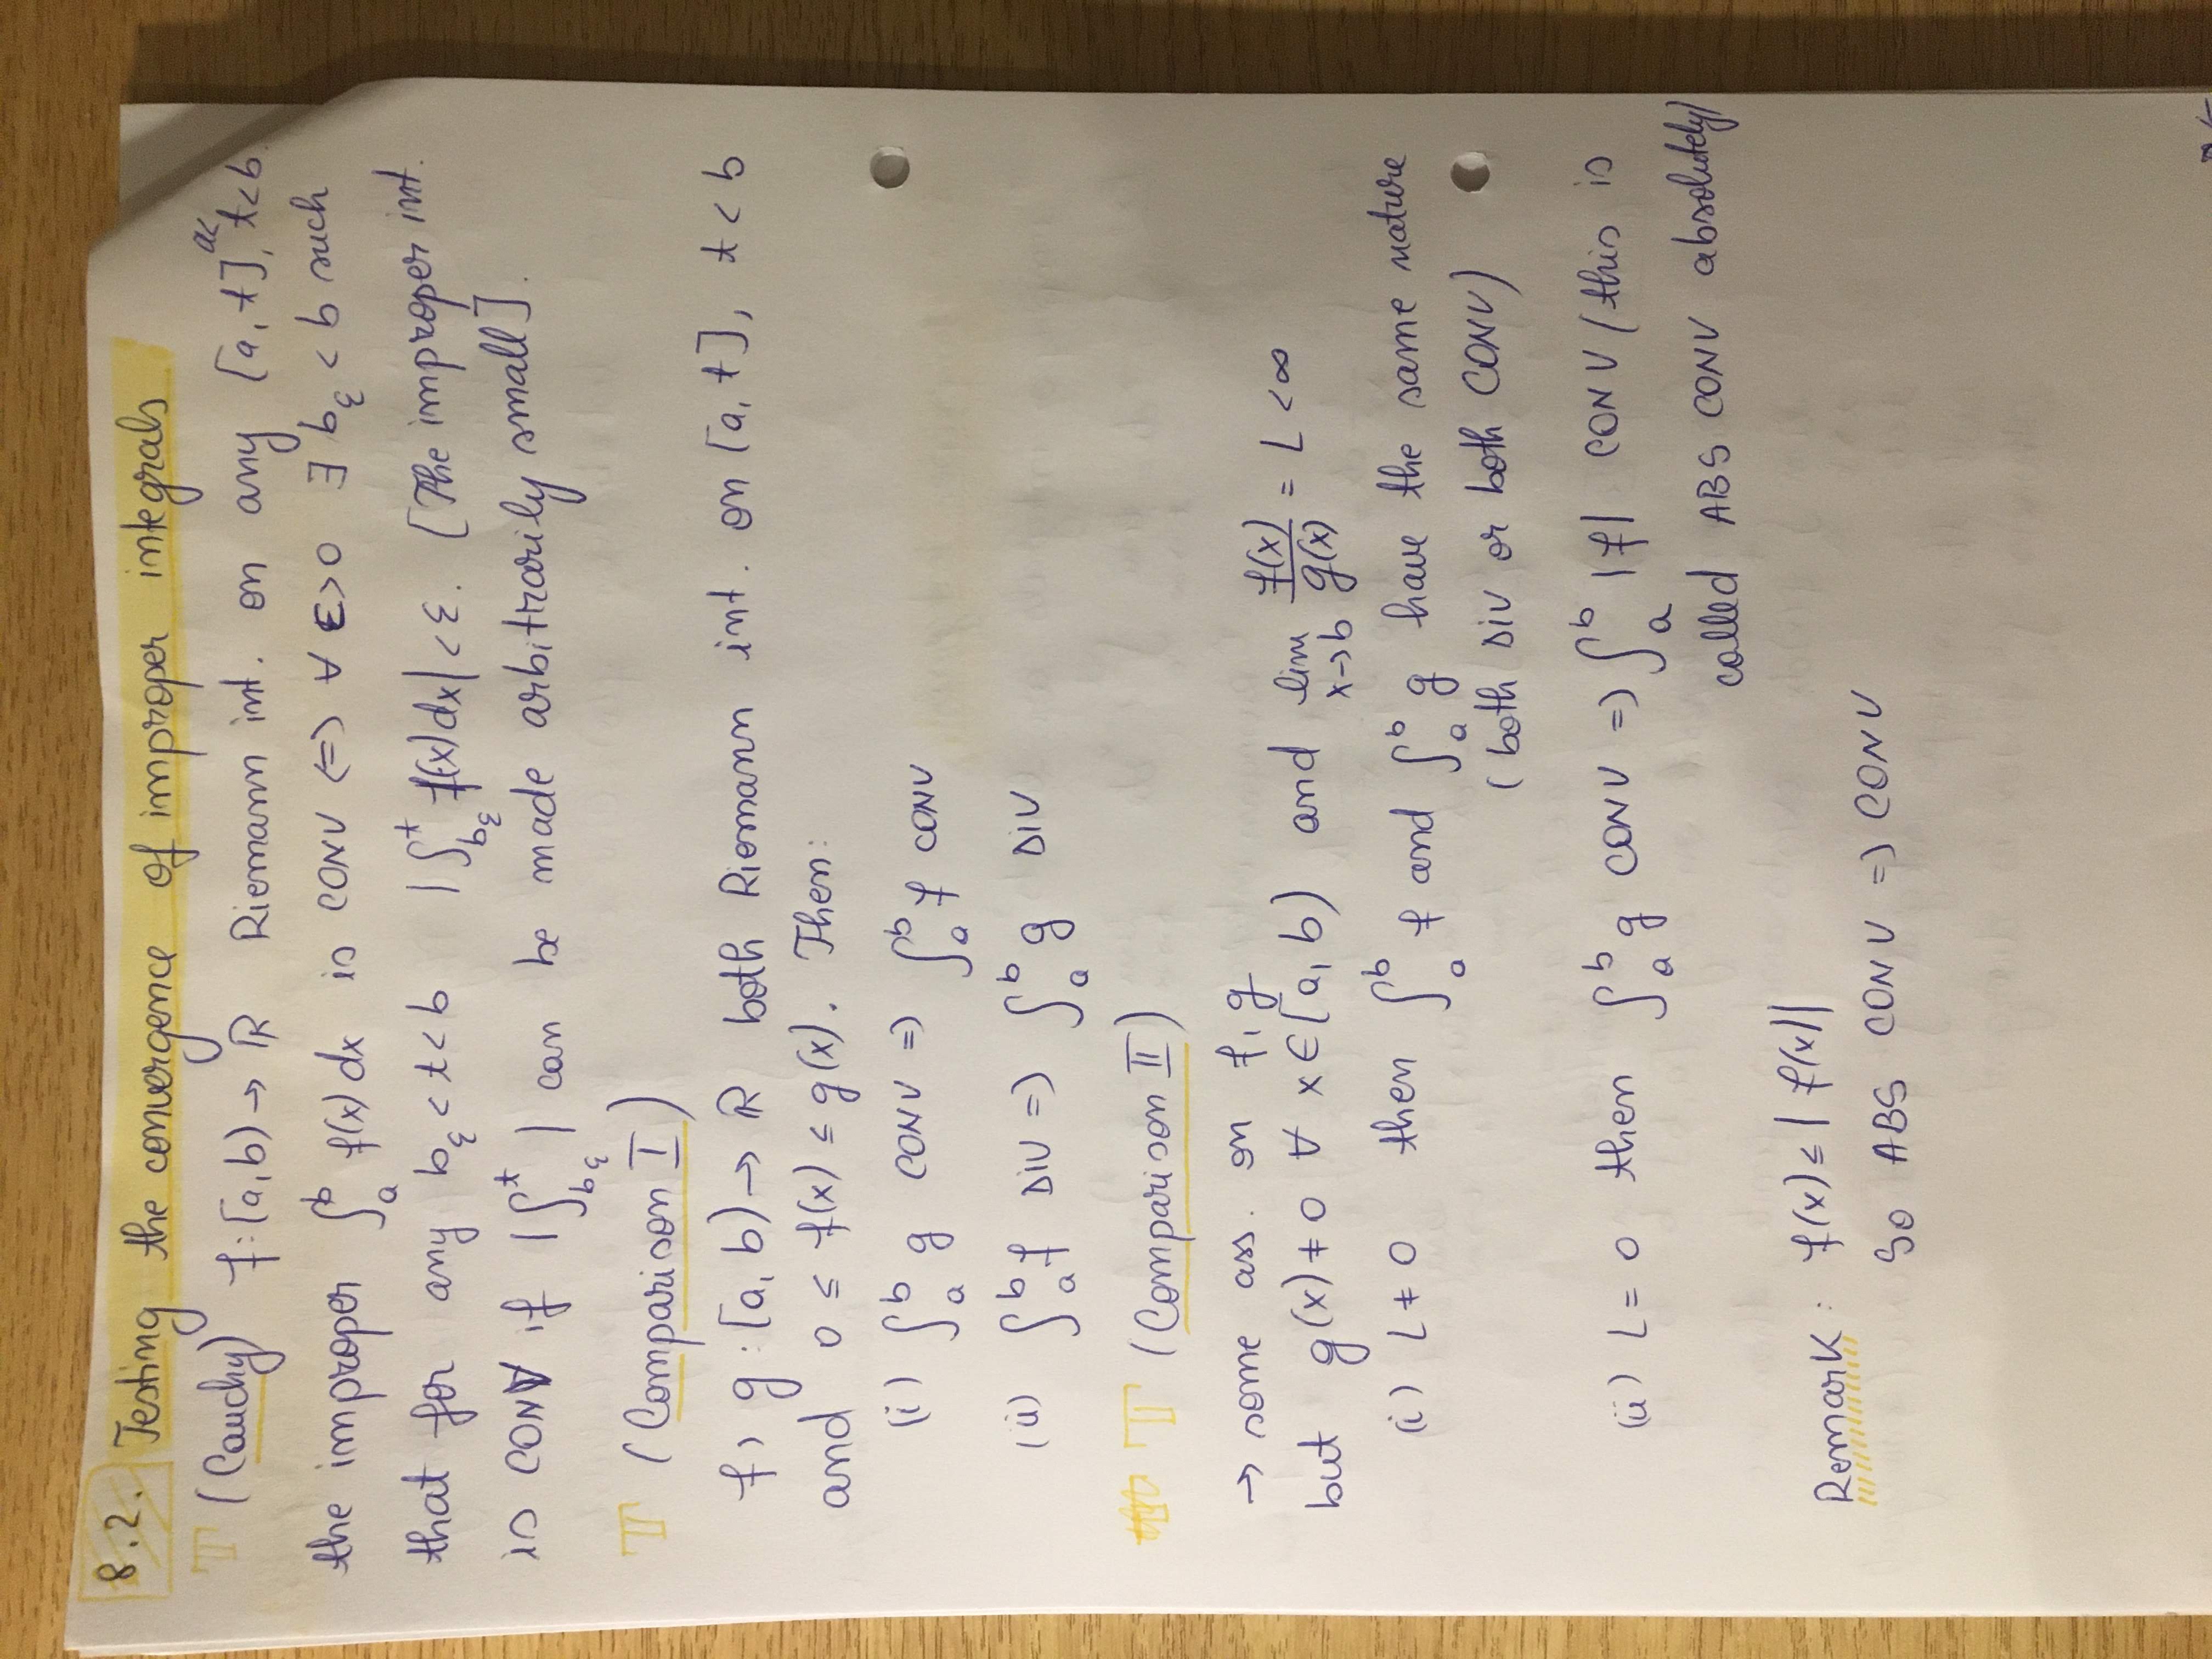 8.2. Testing the convergence of improper integrals
T (Cauchy) f:[a,b) → ℝ Riemann int. on any [a,t], a< t<b.
the improper ∫_a^b f(x)dx is CONV (=) ∀ ε>0 ∃ b_ε < b such
that for any b_ε < t < b |∫_{b_ε}^t f(x)dx| < ε. [The improper int.
is CONV if |∫_{b_ε}^t | can be made arbitrarily small].
T (Comparison I)
f, g : [a, b) → ℝ both Riemann int. on [a, t], t < b
and 0 ≤ f(x) ≤ g(x). Then:
(i) ∫_a^b g CONV =) ∫_a^b f CONV
(ii) ∫_a^b f DIV =) ∫_a^b g DIV
T (Comparison II)
→ some ass. on f, g
but g(x) ≠ 0 ∀ x∈[a, b) and lim_{x→b} f(x)/g(x) = L < ∞
(i) L ≠ 0 then ∫_a^b f and ∫_a^b g have the same nature
(both DIV or both CONV)
(ii) L = 0 then ∫_a^b g CONV =) ∫_a^b |f| CONV (this is
called ABS CONV absolutely)
Remark: f(x) ≤ |f(x)|
So ABS CONV =) CONV